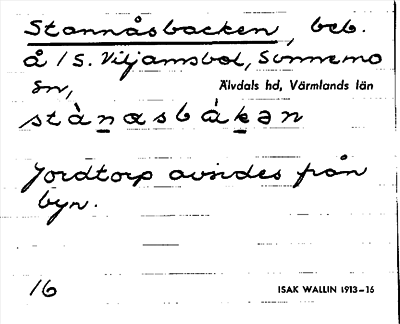 Stannåsbacken, beb.
å /S. Viljamsbol, Sunnemo
sn, Älvdals hd, Värmlands län
stànasbàkən
Jordtorp avsides från
byn.
16 ISAK WALLIN 1913-16